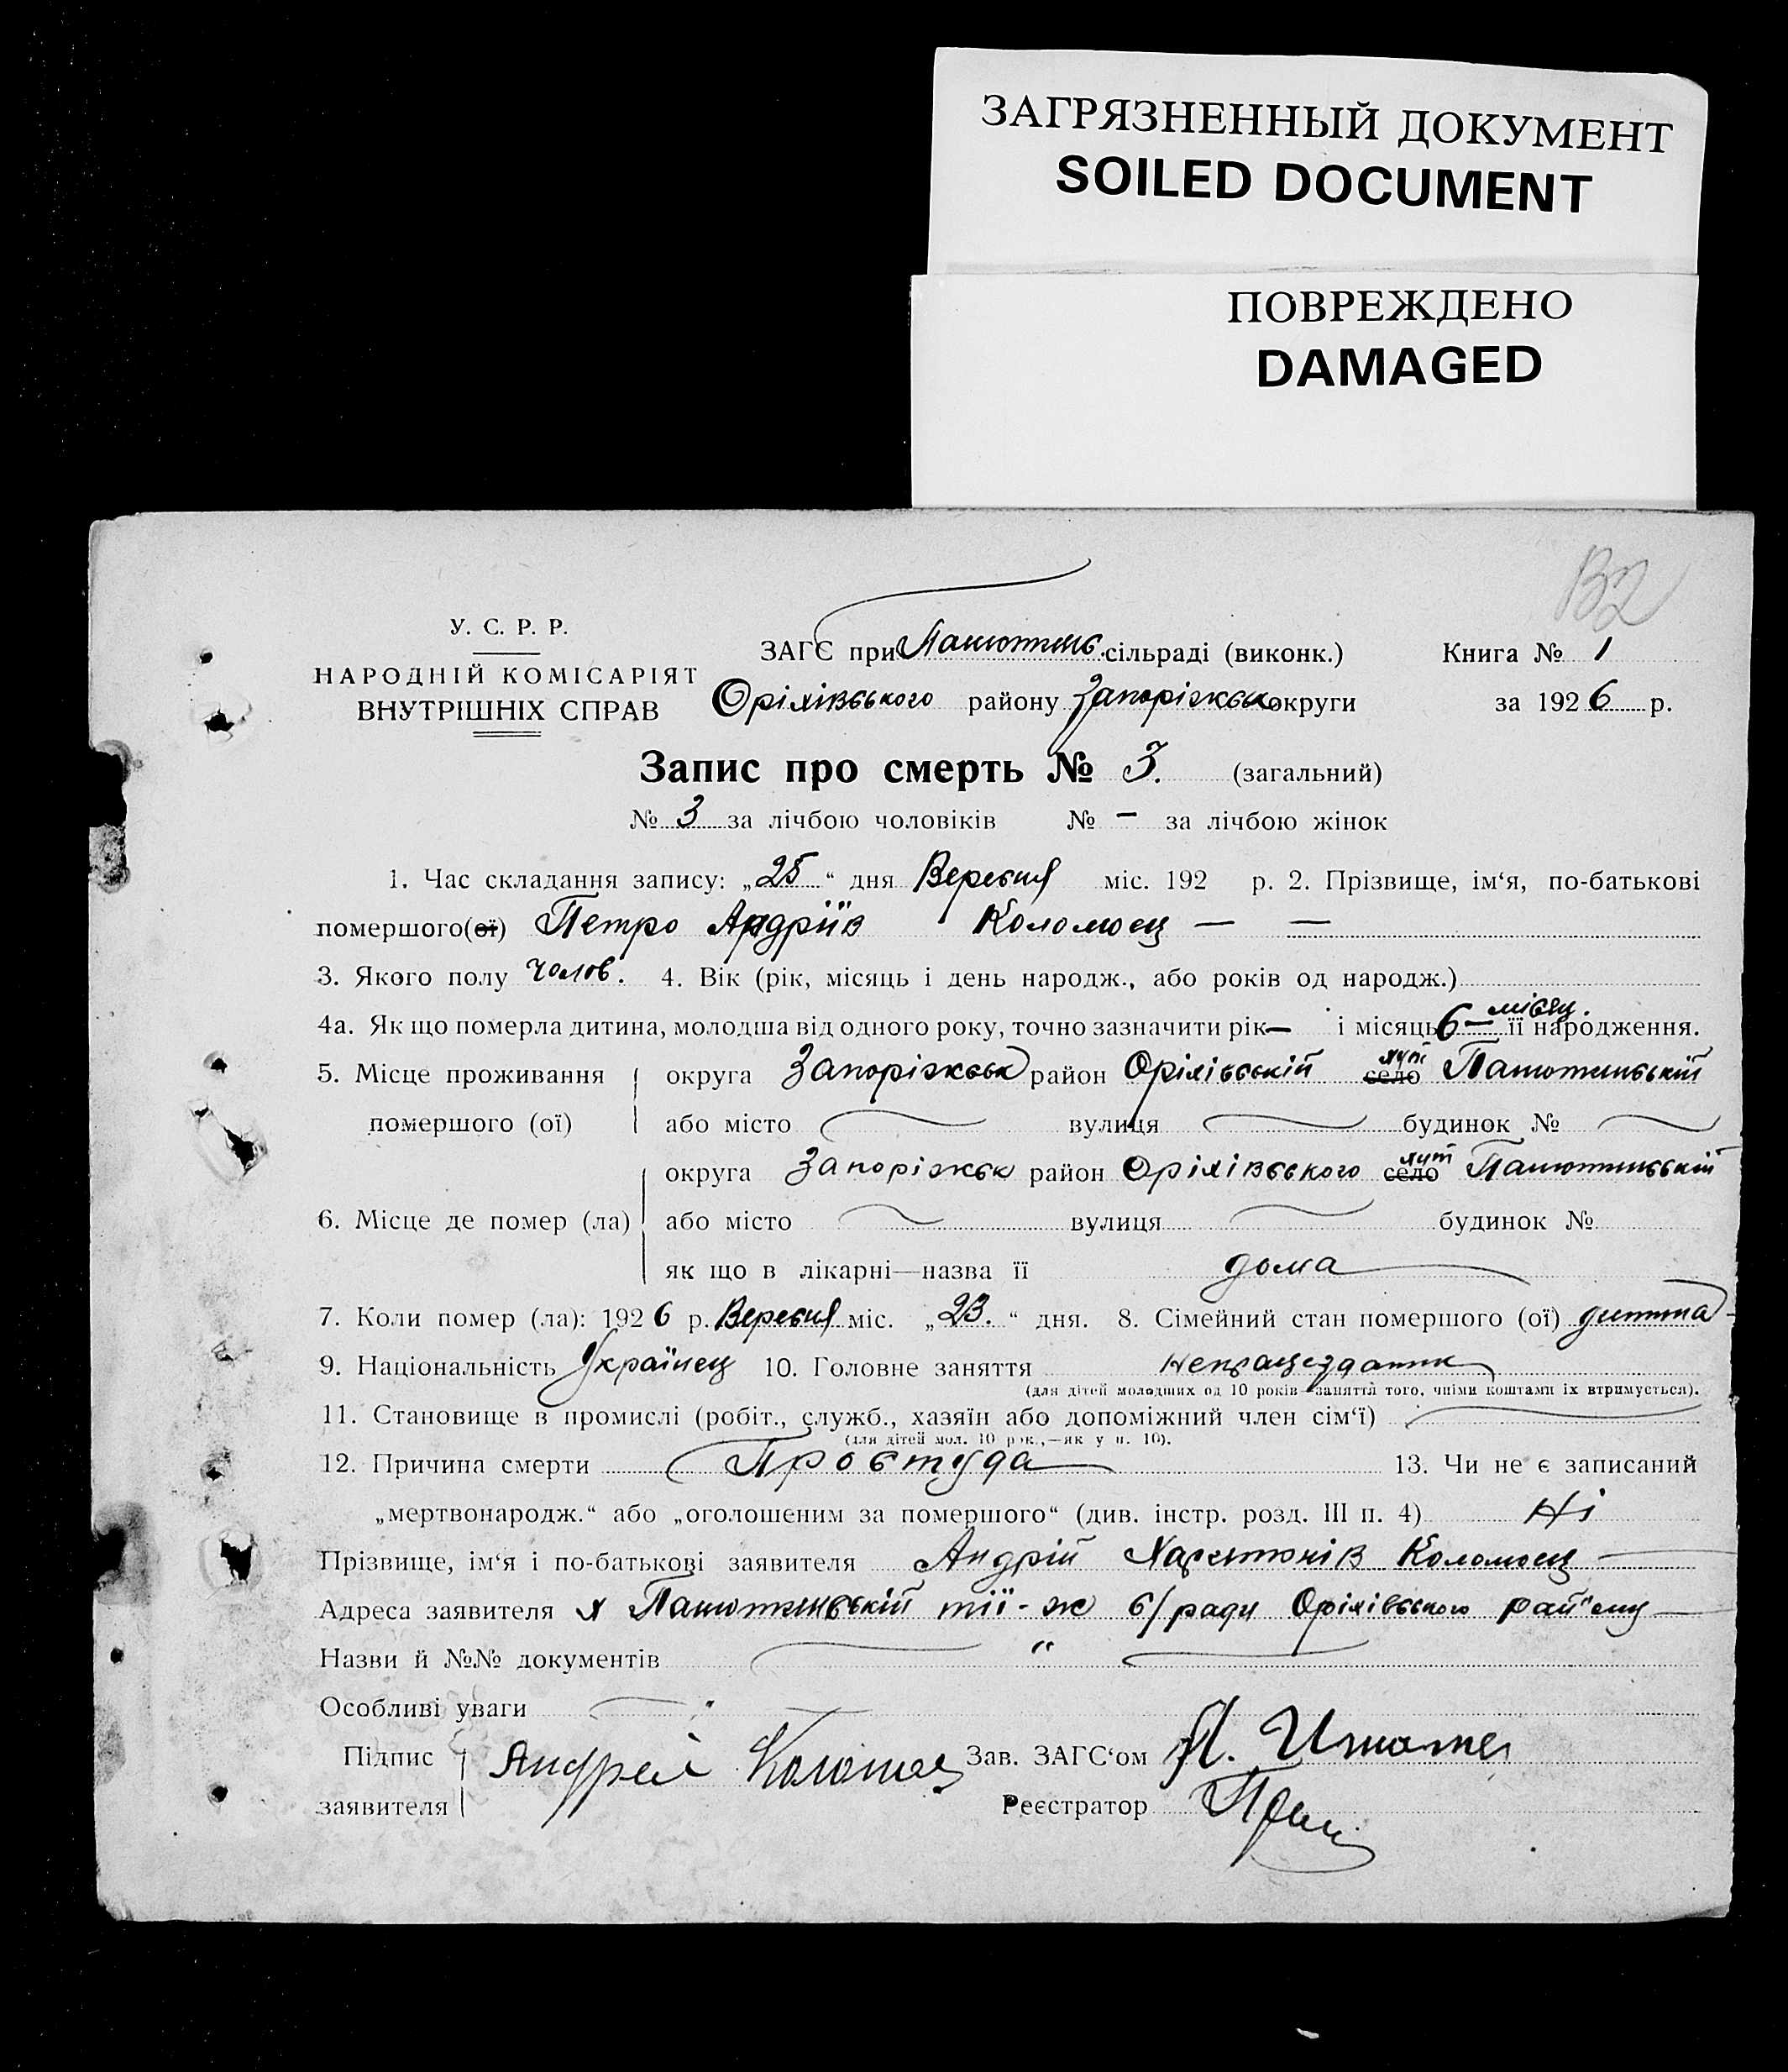 ЗАГРЯЗНЕННЫЙ ДОКУМЕНТ
SOILED DOCUMENT
ПОВРЕЖДЕНО
DAMAGED
В2
У. С. Р. Р.
НАРОДНІЙ КОМІСАРІЯТ
ВНУТРІШНІХ СПРАВ
ЗАГС при Панютинс. сільраді (виконк.) Книга № 1
Оріхівського району Запоріжськ округи за 1926 р.
Запис про смерть № 3. (загальний)
№ 3 за лічбою чоловіків № — за лічбою жінок
1. Час складання запису: „25“ дня Вересня міс. 192 р. 2. Прізвище, ім‘я, по-батькові
помершого(ої) Петро Андріїв Коломоец — —
3. Якого полу чолов. 4. Вік (рік, місяць і день народж., або років од народж.)
4а. Як що померла дитина, молодша від одного року, точно зазначити рік — і місяць 6 — місяц. її народження.
5. Місце проживання округа Запоріжськ район Оріхівській село хут Панютинській
помершого (ої) або місто вулиця будинок №
округа Запоріжськ район Оріхівського село хут Панютинській
6. Місце де помер (ла) або місто вулиця будинок №
як що в лікарні—назва її дома
7. Коли помер (ла): 1926 р. Вересня міс. „23.“ дня. 8. Сімейний стан помершого (ої) дитина
9. Національність Українец 10. Головне заняття непрацездатн
(для дітей молодших од 10 років—заняття того, чиїми коштами їх втримується).
11. Становище в промислі (робіт., служб., хазяїн або допоміжний член сім‘ї)
(для дітей мол. 10 рок.,—як у п. 10).
12. Причина смерти Простуда 13. Чи не є записаний
„мертвонародж.“ або „оголошеним за помершого“ (див. інстр. розд. III п. 4) Ні
Прізвище, ім‘я і по-батькові заявителя Андрій Харитонів Коломоец
Адреса заявителя х Панютинській тії-ж с/ради Оріхівського
Назви й №№ документів "
Особливі уваги
Підпис заявителя Андрей Коломоец Зав. ЗАГС‘ом
Реєстратор